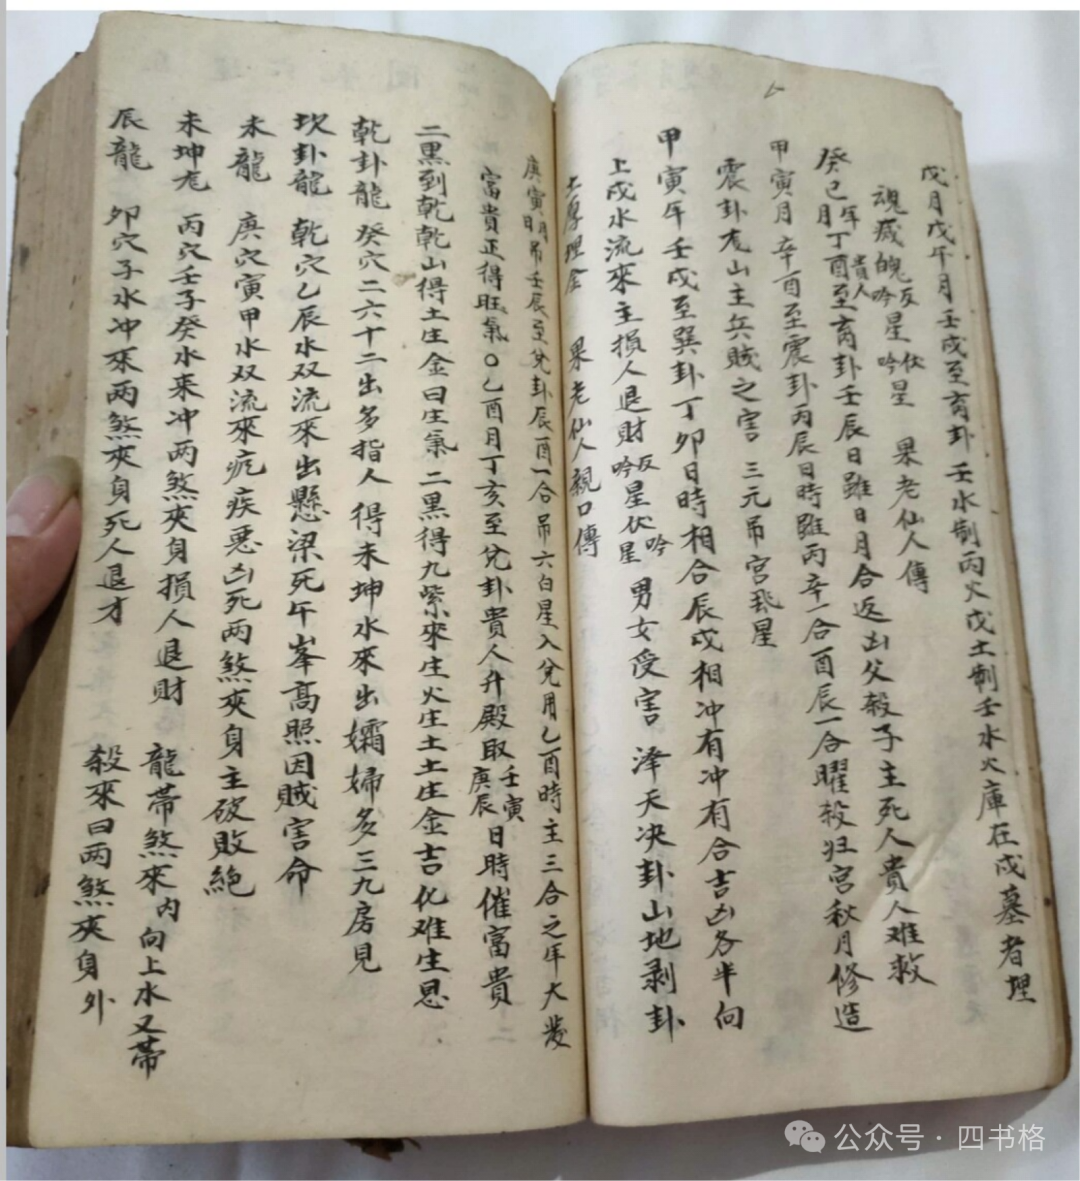 戊月戊午月壬戌至育卦壬水制丙火戊土制壬水火庫在戌墓者埋
魂藏魄反吟星伏吟星 果老仙人傳
癸巳年月丁酉貴人至育卦壬辰日雖日月合返出父殺子主死人貴人难救
甲寅月辛酉至震卦丙辰日時雖丙辛一合酉辰一合曜殺归宫秋月修造
震卦龙山主兵賊之害 三元吊宫飛星
甲寅年壬戌至巽卦丁夘日時相合辰戌相冲有冲有合吉凶各半向
上戌水流來主損人退財反吟星伏吟星 男女受害 泽天决卦山地剥卦
土厚埋金 果老仙人親口傳
庚寅月日吊壬辰至兌卦辰酉一合吊六白星入兌用乙酉時主三合之年大發
富貴正得旺氣〇乙酉月丁亥至兌卦貴人升殿取壬寅庚辰日時催富貴
二黑到乾乾山得土生金曰生氣二黑得九紫來生火生土土生金吉化难生恩
乾卦龍癸穴二六十二出多指人得未坤水來出孀婦多三九房見
坎卦龍 乾穴乙辰水双流來出懸梁死午峯高照因賊害命
未龍 庚穴寅甲水双流來疕疾惡凶死两煞夾身主破敗絕
未坤龙 丙穴壬子癸水來冲两煞夾身損人退財
辰龍 夘穴子水冲來两煞夾身死人退才
龍帯煞來内向上水又帯
殺來曰两煞夾身外
公众号·四书格